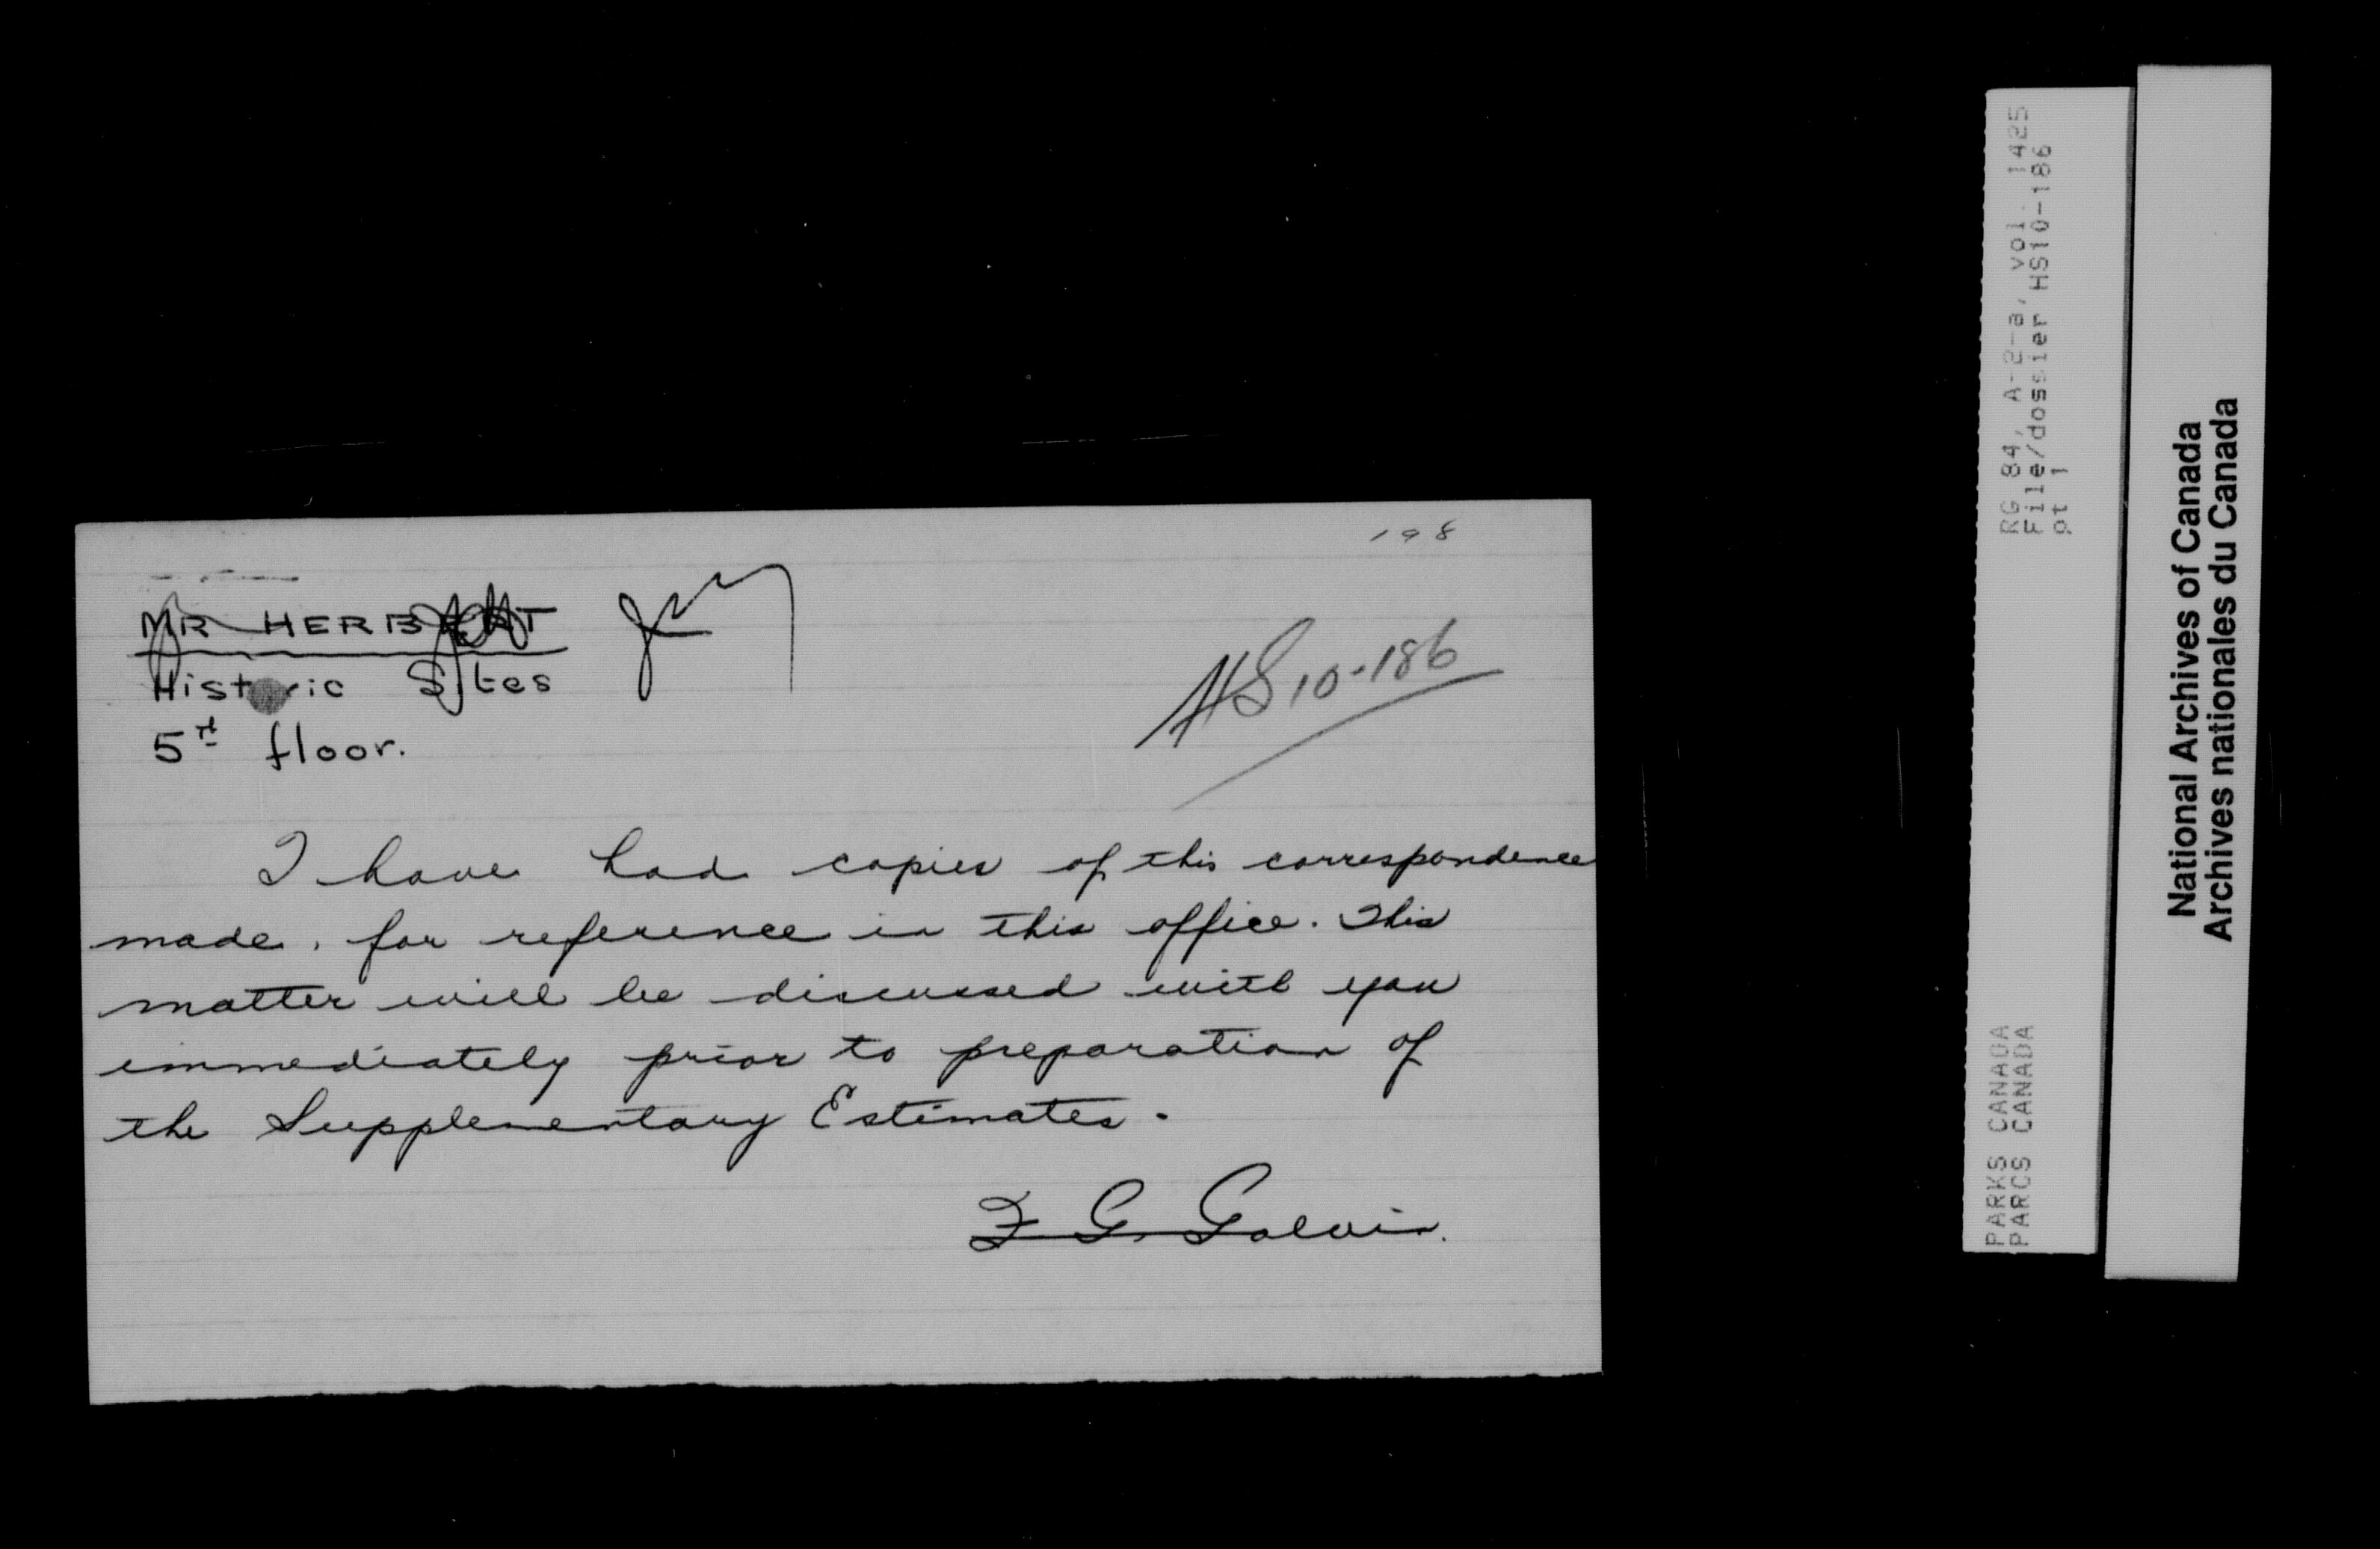 198
MR HERBERT
Historic Sites
5th floor.
HS10-186
I have had copies of this correspondence
made, for reference in this office. This
matter will be discussed with you
immediately prior to preparation of
the Supplementary Estimates.
F G Galvin.
RG 84, A-2-a, vol. 1425
File/dossier HS10-186
pt 1
PARKS CANADA
PARCS CANADA
National Archives of Canada
Archives nationales du Canada